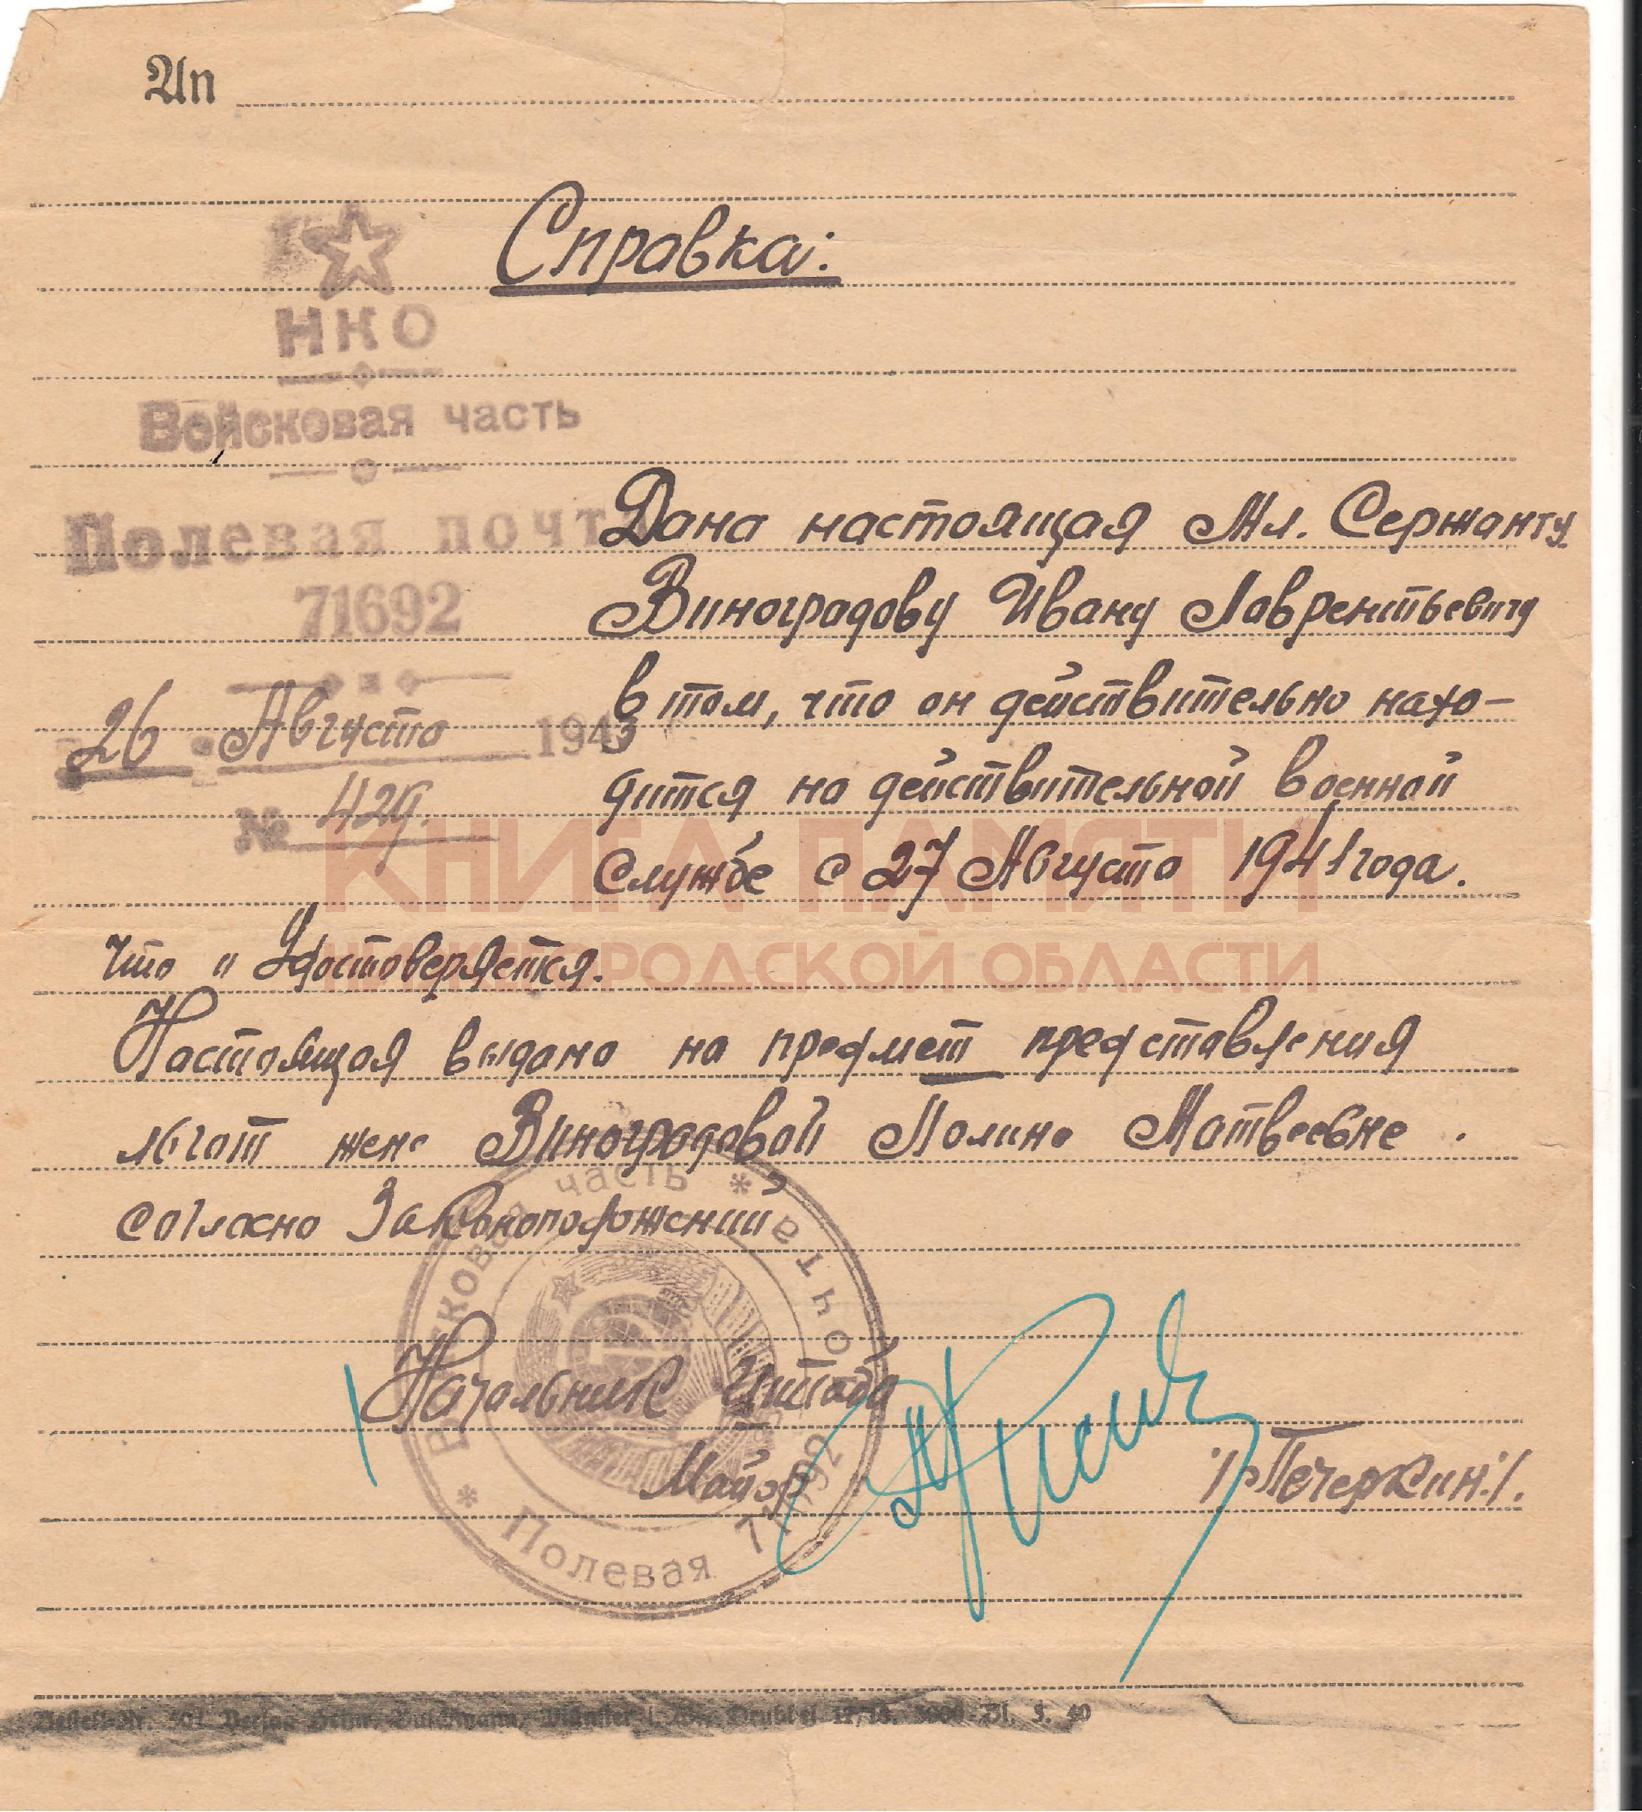 An
Справка:
НКО
Войсковая часть
Полевая почта
71692
26 Августа 1943
№ 429.
Дана настоящая Мл. Сержанту
Виноградову Ивану Лаврентьевичу
в том, что он действительно нахо-
дится на действительной военной
службе с 27 Августа 1941 года.
Что и Удостоверяется.
Настоящая выдана на предмет представления
льгот жене Виноградовой Полине Матвеевне.
согласно Законоположений
Начальник Штаба
Майор
/Печеркин:/.
Войсковая часть * Полевая почта 71692 *
КНИГА ПАМЯТИ
НИЖЕГОРОДСКОЙ ОБЛАСТИ